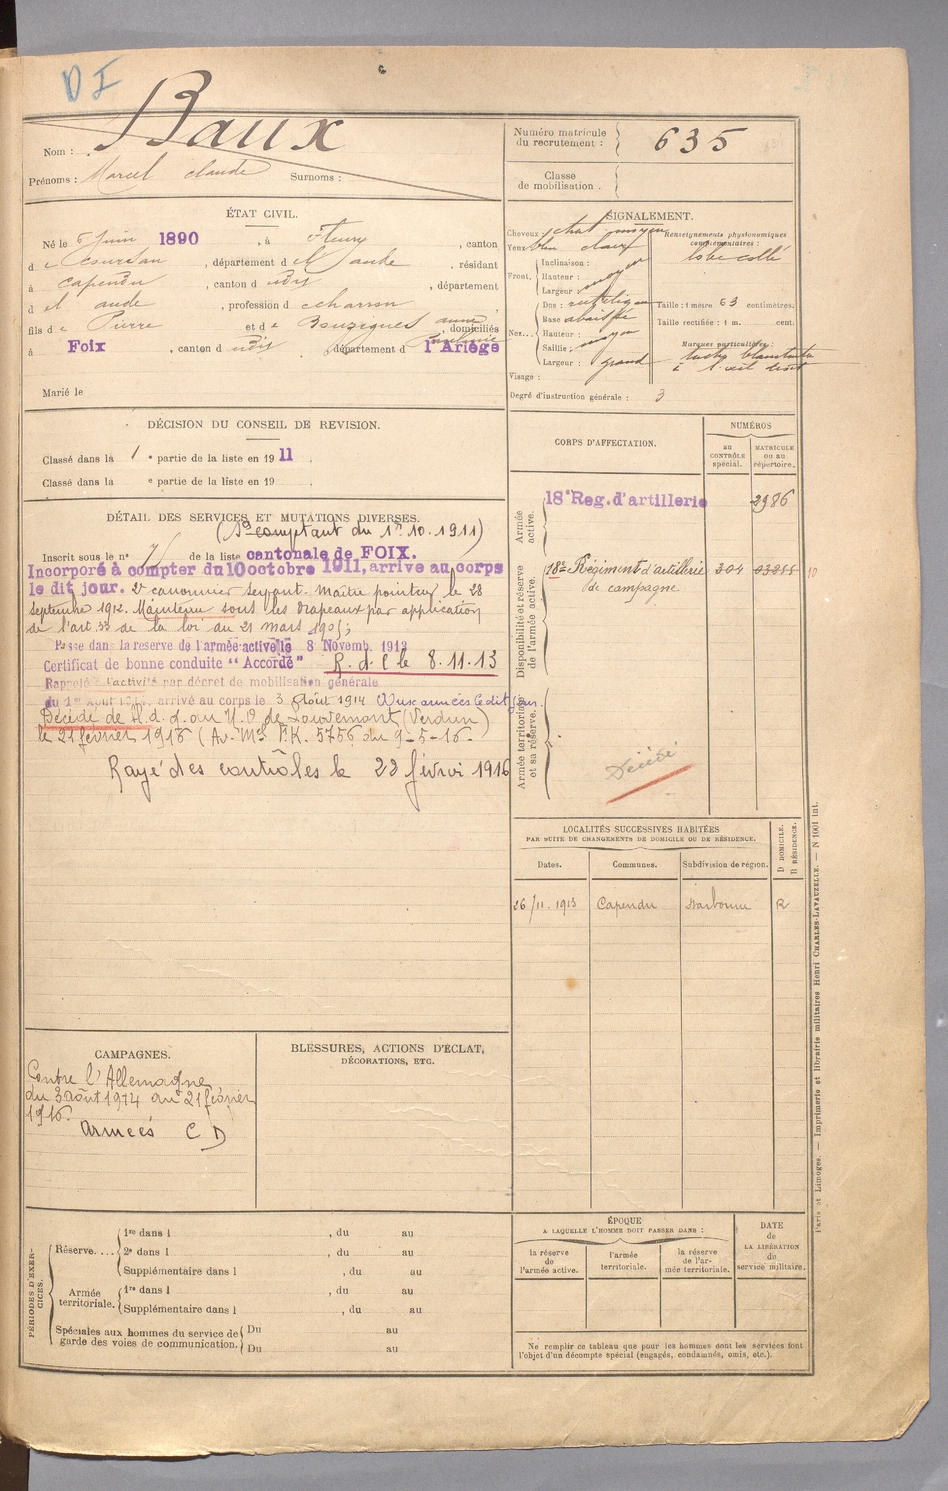 D I
Baux
Nom :
Prénoms : Marcel Claude Surnoms :
Numéro matricule
du recrutement : 635
Classe
de mobilisation .
ÉTAT CIVIL.
Né le 6 Juin 1890 , à Fleury , canton
de Coursan , département de l'Aude , résidant
à Capendu , canton d udit , département
de l'Aude , profession de charron ,
fils de Pierre et de Bouzigues Anne , domiciliés
à Foix , canton d udit , département d l'Ariège
Marié le
SIGNALEMENT.
Cheveux : chat moyen
Yeux bleu clair
Front. Inclinaison :
Hauteur : moyen
Largeur :
Nez... Dos : rectiligne
Base
Hauteur :
Saillie : moyen
Largeur : grand
Visage :
Degré d'instruction générale : 3
Renseignements physionomiques
complémentaires :
lobe collé
Taille : 1 mètre 63 centimètres.
Taille rectifiée : 1 m. cent.
Marques particulières :
à l'œil droit
DÉCISION DU CONSEIL DE REVISION.
Classé dans la 1 e partie de la liste en 1911 .
Classé dans la e partie de la liste en 19 .
DÉTAIL DES SERVICES ET MUTATIONS DIVERSES.
(Se comptant du 1er 10.1911)
Inscrit sous le n° de la liste cantonale de FOIX.
Incorporé à compter du 10 octobre 1911, arrive au corps
le dit jour. 2e canonnier servant. Maître pointeur le 28
septembre 1912. Maintenu sous les drapeaux par application
de l'art. 33 de la loi du 21 mars 1905;
Passé dans la reserve de l'armée active le 8 Novemb. 1913
Certificat de bonne conduite "Accordé" R. d. C le 8.11.13
Rappelé à l'activité par décret de mobilisation générale
du 1er Août 1914, arrivé au corps le 3 Août 1914 Aux armées le dit jour.
Décédé de
le 21 février 1916 (Av. Mel P.K. 5756 du 9-5-16.
Rayé des contrôles le 22 février 1916
CORPS D'AFFECTATION.
NUMÉROS
AU CONTRÔLE spécial.
MATRICULE OU AU répertoire.
Armée active.
18e Reg. d'artillerie 2986
Disponibilité et réserve de l'armée active.
18e Régiment d'artillerie 304
de campagne
Armée territoriale et sa réserve.
Décédé
LOCALITÉS SUCCESSIVES HABITÉES
PAR SUITE DE CHANGEMENTS DE DOMICILE OU DE RÉSIDENCE.
Dates. Communes. Subdivision de région. D DOMICILE. R RÉSIDENCE.
26/11.1913 Capendu Narbonne R
CAMPAGNES.
Contre l'Allemagne
du 3 août 1914 au 21 février
1916.
Armées C D
BLESSURES, ACTIONS D'ÉCLAT,
DÉCORATIONS, ETC.
PÉRIODES D'EXERCICES.
Réserve.... 1re dans l , du au
2e dans l , du au
Supplémentaire dans l , du au
Armée territoriale. 1re dans l , du au
Supplémentaire dans l , du au
Spéciales aux hommes du service de Du au
garde des voies de communication. Du au
ÉPOQUE
A LAQUELLE L'HOMME DOIT PASSER DANS :
la réserve de l'armée active.
l'armée territoriale.
la réserve de l'armée territoriale.
DATE de LA LIBÉRATION du service militaire.
Ne remplir ce tableau que pour les hommes dont les services font
l'objet d'un décompte spécial (engagés, condamnés, omis, etc.).
Paris et Limoges. — Imprimerie et librairie militaires Henri CHARLES-LAVAUZELLE. — N 1001 int.